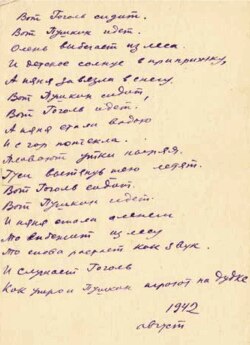 Вот Гоголь сидит.
Вот Пушкин идет.
Олень выбегает из леса.
И детское солнце в припрыжку,
А няня завязла в снегу.
Вот Пушкин сидит,
Вот Гоголь идет.
А няня стала водою
И с гор потекла...
Плавают утки ныряя.
Гуси вытянув шею летят.
Вот Гоголь сидит.
Вот Пушкин идет.
И няня стала оленем
То выбежит из лесу
То снова растает как звук.
И слушает Гоголь
Как утром Пушкин играет на дудке
1942
август